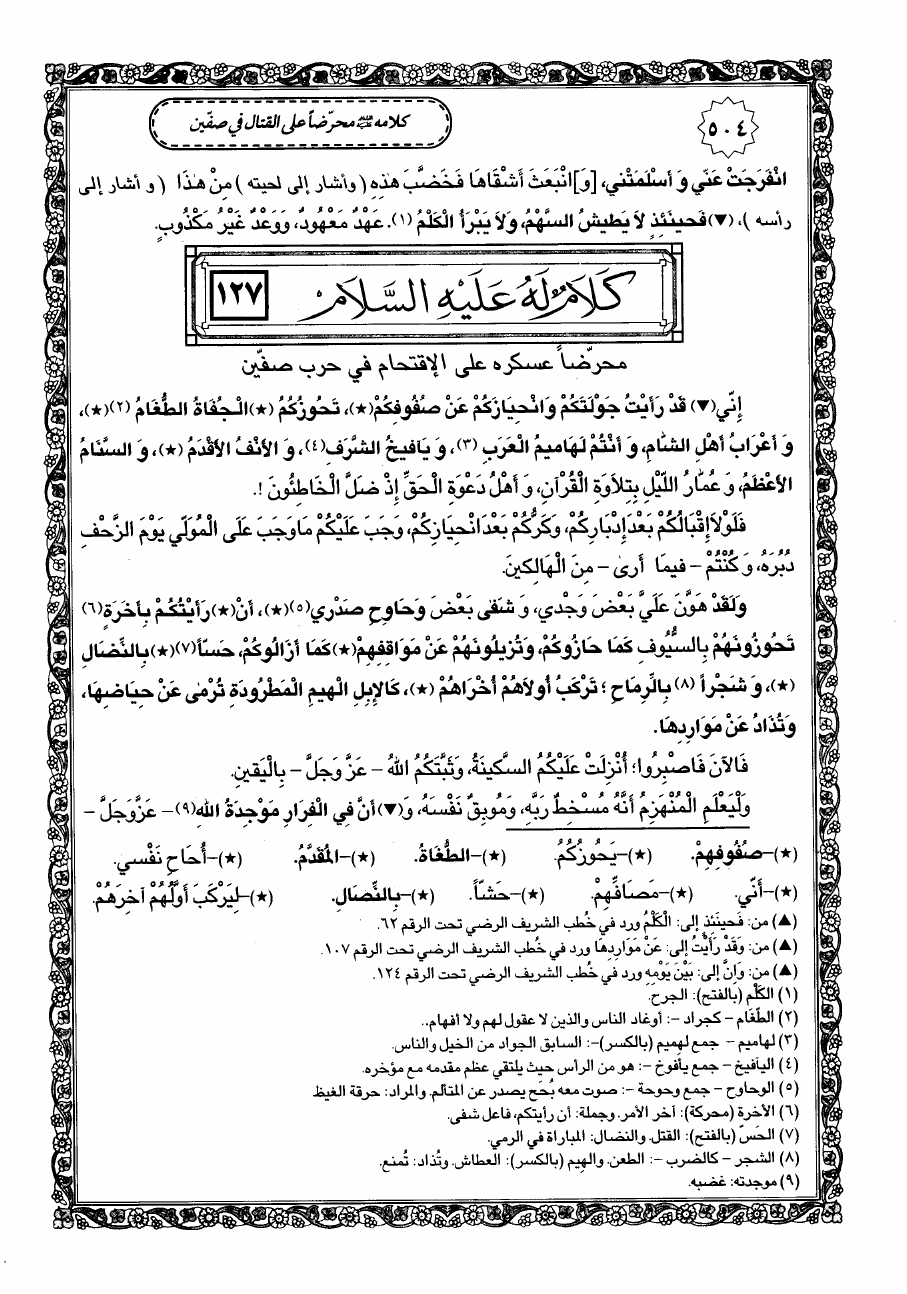 ٥٠٤
كلامه ﷺ محرّضاً على القتال في صفّين
انْفَرَجَتْ عَنّي وَ أَسْلَمَتْني، [وَ] انْبَعَثَ أَشْقَاهَا فَخَضَّبَ هٰذِهِ ( وأشار إلى لحيته ) مِنْ هٰذَا ( و أشار إلى
رأسه )، (▼) فَحينَئِذٍ لاَ يَطيشُ السَّهْمُ، وَلاَ يَبْرَأُ الْكَلْمُ (١). عَهْدٌ مَعْهُودٌ، وَوَعْدٌ غَيْرُ مَكْذُوبٍ.
كَلَامٌ لَهُ عَلَيْهِ السَّلَامُ
١٢٧
محرّضاً عسكره على الإقتحام في حرب صفّين
إِنّي (▼) قَدْ رَأَيْتُ جَوْلَتَكُمْ وَانْحِيَازَكُمْ عَنْ صُفُوفِكُمْ (★)، تَحُوزُكُمُ (★) الْجُفَاةُ الطَّغَامُ (٢)(★)،
وَ أَعْرَابُ أَهْلِ الشَّامِ، وَ أَنْتُمْ لَهَاميمُ الْعَرَبِ (٣)، وَ يَافيخُ الشَّرَفِ (٤)، وَ الأَنْفُ الأَقْدَمُ (★)، وَ السَّنَامُ
الأَعْظَمُ، وَ عُمَّارُ اللَّيْلِ بِتِلاَوَةِ الْقُرْآنِ، وَ أَهْلُ دَعْوَةِ الْحَقِّ إِذْ ضَلَّ الْخَاطِئُونَ !.
فَلَوْلاَ إِقْبَالُكُمْ بَعْدَ إِدْبَارِكُمْ، وَكَرُّكُمْ بَعْدَ انْحِيَازِكُمْ، وَجَبَ عَلَيْكُمْ مَا وَجَبَ عَلَى الْمُوَلّي يَوْمَ الزَّحْفِ
دُبُرَهُ، وَ كُنْتُمْ - فيمَا أَرىٰ - مِنَ الْهَالِكينَ.
وَلَقَدْ هَوَّنَ عَلَيَّ بَعْضَ وَجْدي، وَ شَفٰى بَعْضَ وَحَاوِحِ صَدْري (٥)(★)، أَنْ (★) رَأَيْتُكُمْ بِأَخَرَةٍ (٦)
تَحُوزُونَهُمْ بِالسُّيُوفِ كَمَا حَازُوكُمْ، وَتُزيلُونَهُمْ عَنْ مَوَاقِفِهِمْ (★) كَمَا أَزَالُوكُمْ، حَسّاً (٧)(★) بِالنِّضَالِ
(★)، وَ شَجْراً (٨) بِالرِّمَاحِ ؛ تَرْكَبُ أُولاَهُمْ أُخْرَاهُمْ (★)، كَالإِبِلِ الْهيمِ الْمَطْرُودَةِ تُرْمٰى عَنْ حِيَاضِهَا،
وَتُذَادُ عَنْ مَوَارِدِهَا.
فَالآنَ فَاصْبِرُوا؛ أُنْزِلَتْ عَلَيْكُمُ السَّكينَةُ، وَثَبَّتَكُمُ اللهُ - عَزَّ وَجَلَّ - بِالْيَقينِ.
وَلْيَعْلَمِ الْمُنْهَزِمُ أَنَّهُ مُسْخِطٌ رَبَّهُ، وَمُوبِقٌ نَفْسَهُ، وَ (▼) أَنَّ فِي الْفِرَارِ مَوْجِدَةُ اللهِ (٩) - عَزَّ وَجَلَّ -
(★) - صُفُوفِهِمْ. (★) - يَحُوزُكُمُ. (★) - الطُّغَاةُ. (★) - الْمُقَدَّمُ. (★) - أُحَاحِ نَفْسي.
(★) - أَنّي. (★) - مَصَافِّهِمْ. (★) - حَشّاً. (★) - بِالنِّصَالِ. (★) - لِيَرْكَبَ أَوَّلُهُمْ آخِرَهُمْ.
(▲) من: فَحينَئِذٍ إلى: الْكَلْمُ ورد في خُطب الشريف الرضي تحت الرقم ٦٢.
(▲) من: وَقَدْ رَأَيْتُ إلى: عَنْ مَوَارِدِهَا ورد في خُطب الشريف الرضي تحت الرقم ١٠٧.
(▲) من: وَإِنَّ إلى: بَيْنَ يَوْمِهِ ورد في خُطب الشريف الرضي تحت الرقم ١٢٤.
(١) الكَلْم (بالفتح): الجرح.
(٢) الطَّغَام - كجراد -: أوغاد الناس والذين لا عقول لهم ولا أفهام..
(٣) لهاميم - جمع لهميم (بالكسر) -: السابق الجواد من الخيل والناس.
(٤) اليآفيخ - جمع يأفوخ -: هو من الرأس حيث يلتقي عظم مقدمه مع مؤخره.
(٥) الوحاوح - جمع وحوحة -: صوت معه بُحَح يصدر عن المتألم. والمراد: حرقة الغيظ
(٦) الأخرة (محركة): آخر الأمر. وجملة: أن رأيتكم، فاعل شفى.
(٧) الحَسّ (بالفتح): القتل. والنضال: المباراة في الرمي.
(٨) الشجر - كالضرب -: الطعن. والهيم (بالكسر): العطاش. وتُذاد: تُمنع.
(٩) موجدته: غضبه.